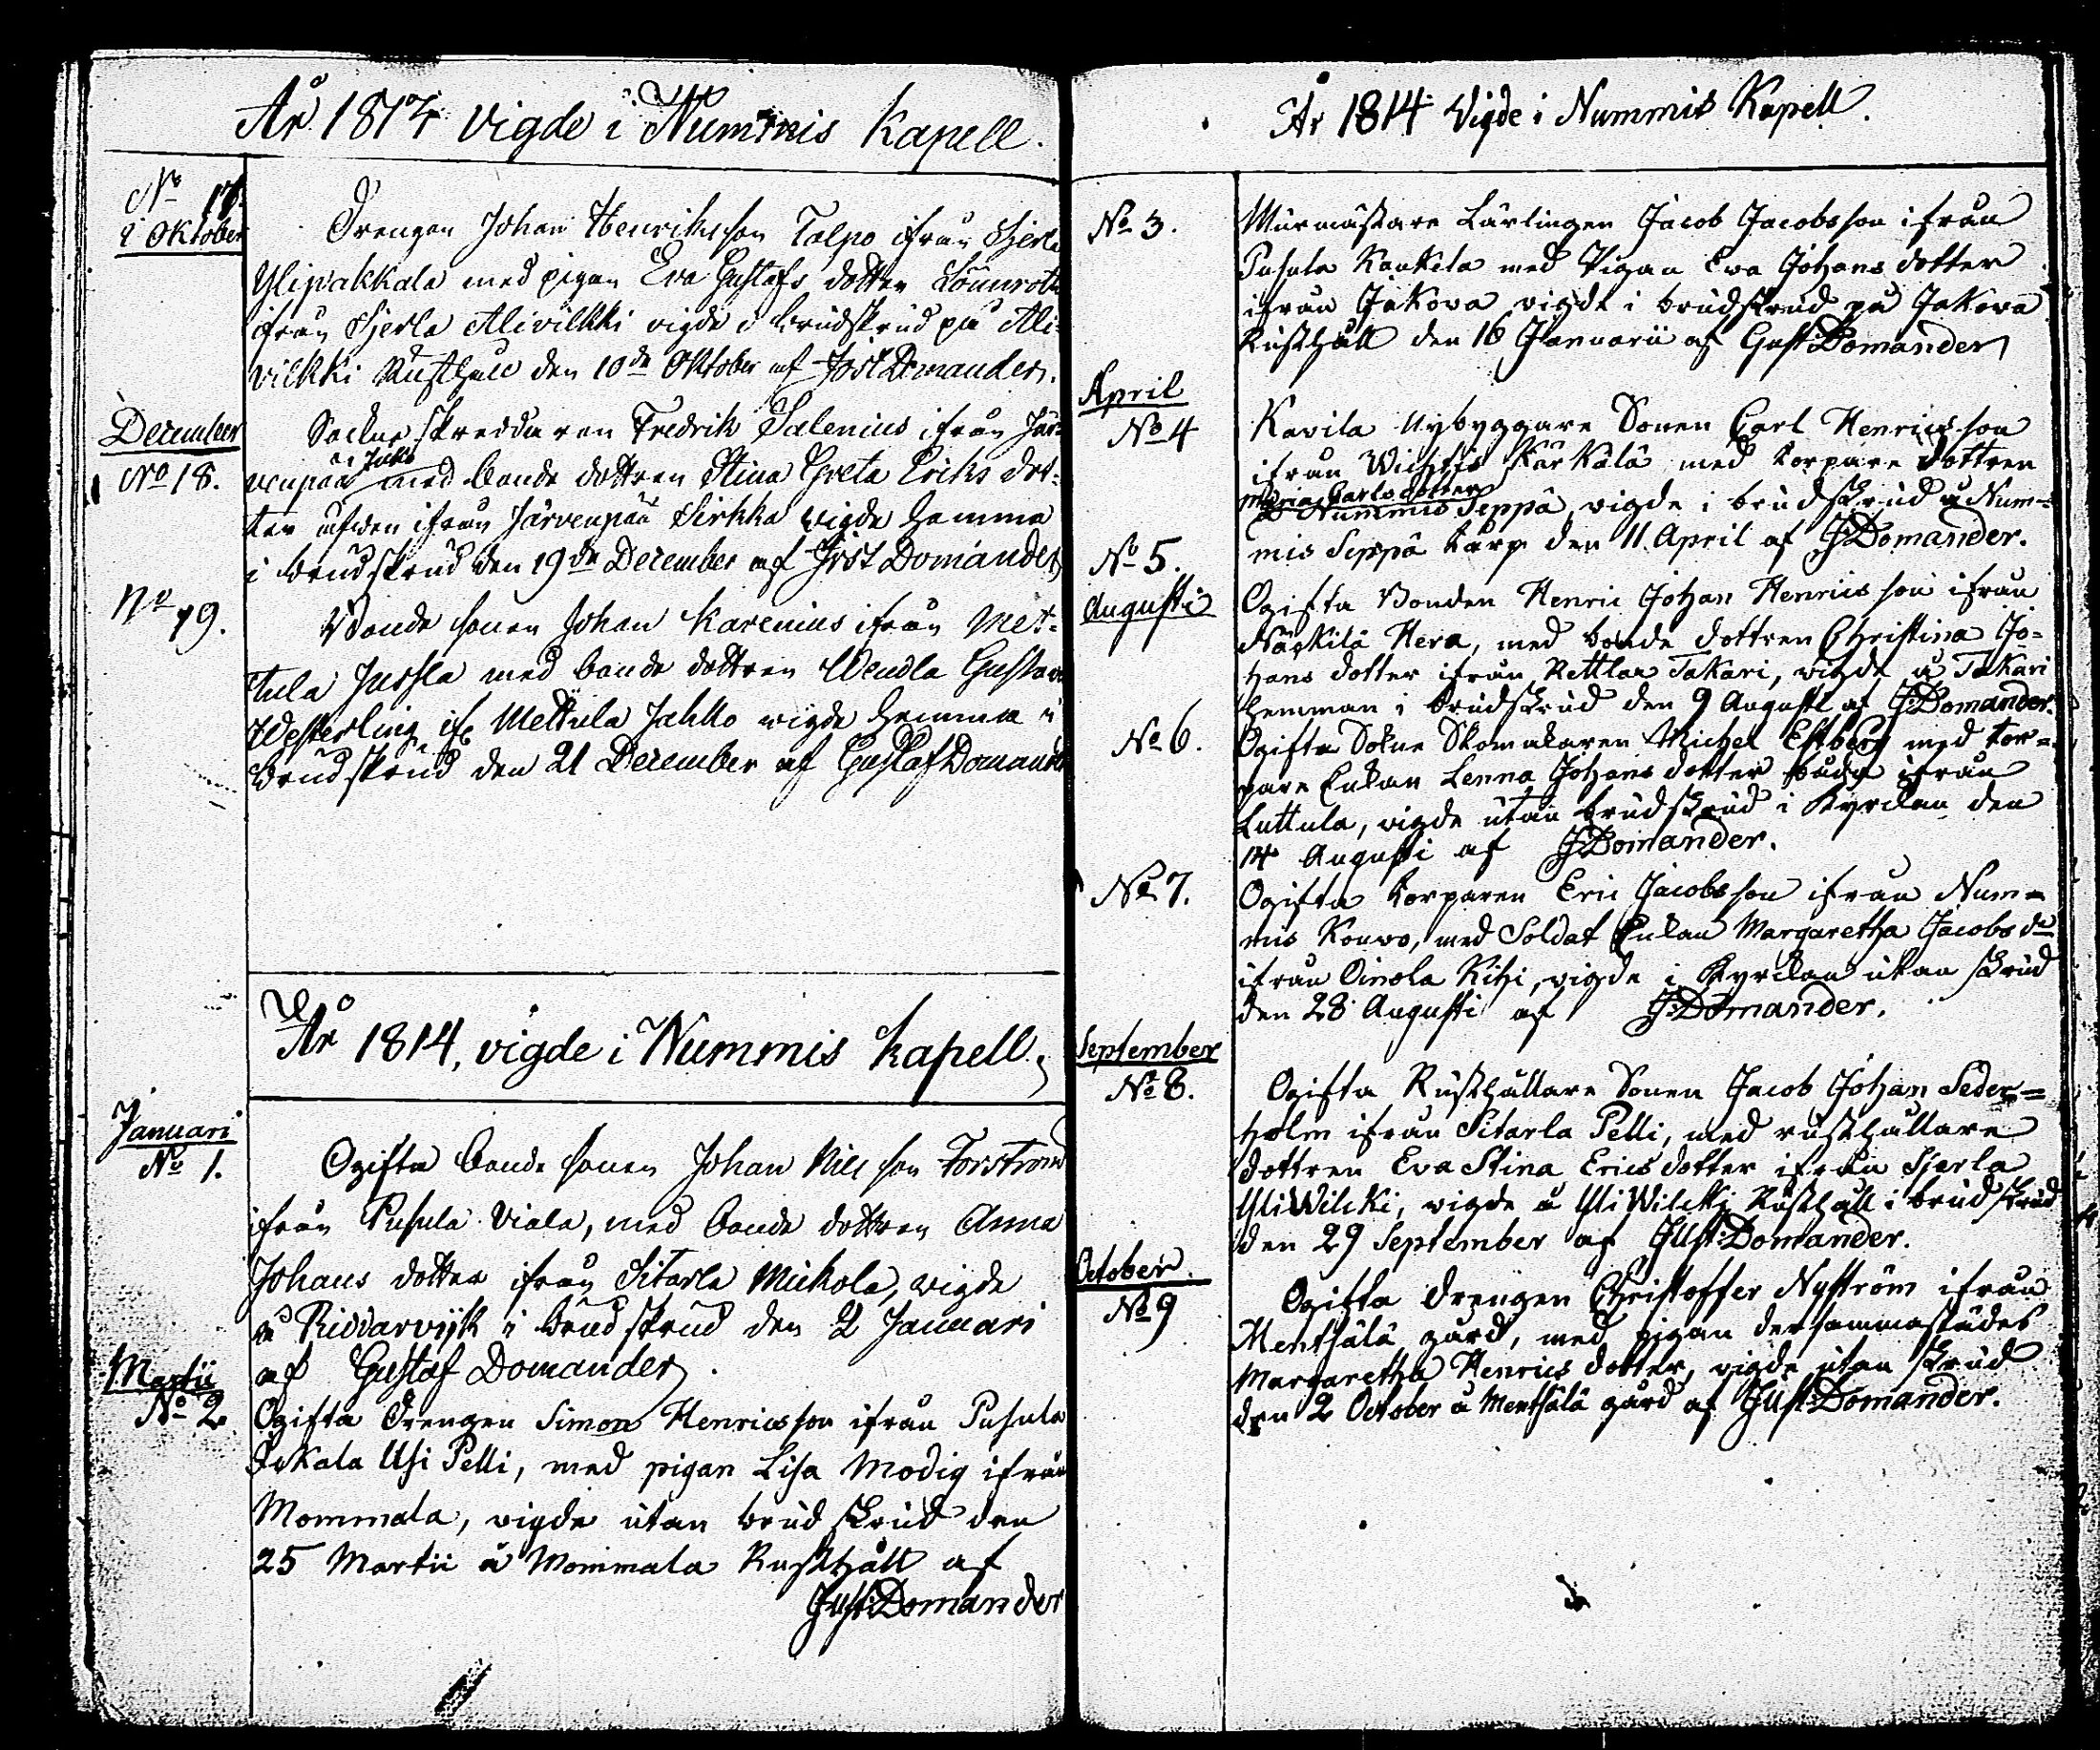 År 1814 vigde i Nummis Kapell.
No 17.
i Oktober
Drengen Johan Henriksson Talpo ifrån Hjerla
Ylipakkala med pigan Eva Gustafs dotter Lönnroth
ifrån Hjerla Alivilkki vigde i brudskrud på Ali-
vilkki Rusthåll den 10de Oktober af Gust Domander.
December
No 18.
Sockne skreddaren Fredrik Salenius ifrån Jär-
venpää med bonde dottren Stina Greta Eriks dot-
ter äfven ifrån Järvenpää Sirkka vigde hemma
i brudskrud den 19de December af Gust Domander
No 19.
Bonde sonen Johan Karenius ifrån Met-
tula Jussla med bonde dottren Wendla Gustava
Westerling if. Mettula Jahko vigde hemma i
brudskrud den 21 December af Gustaf Domander
År 1814, vigde i Nummis kapell.
Januari
No 1.
Ogifte bonde sonen Johan Nils son Forström
ifrån Pusula Viala, med bonde dottren Anna
Johans dotter ifrån Sitarla Mickola, vigde
å Riddarvijk i brudskrud den 2 Januari
af Gustaf Domander.
Martii
No 2.
Ogifta Drengen Simon Henricsson ifrån Pusula
Usi Pelli, med pigan Lisa Modig ifrån
Mommala, vigde utan brudskrud den
25 Martii å Mommala Rusthåll af
Gust: Domander
År 1814 Vigde i Nummis Kapell.
No 3.
Murmästare Lärlingen Jacob Jacobsson ifrån
Pusula Kaukela med Pigan Eva Johans dotter
ifrån Jakova vigde i brudskrud på Jakova
Rusthåll den 16 Januarii af Gust: Domander
April
No 4
Kavila Nybyggare Sonen Carl Henricsson
ifrån Wichtis Kärkälä med torpare dottren
Maria Carls dotter
Nummis Seppä, vigde i brudskrud å Num-
mis Seppä torp den 11 April af G Domander.
No 5.
Augusti
Ogifta Bonden Henric Johan Henricsson ifrån
Näkkilä Hera, med bonde dottren Christina Jo-
hans dotter ifrån Rettlax Takari, vigde å Takari
hemman i brudskrud den 9 Augusti af G: Domander.
No 6.
Ogifta Sokne Skomakaren Michel Estberg med tor-
pare Enkan Lenna Johans dotter både ifrån
Luttula, vigde utan brudskrud i Kyrckan den
14 Augusti af G Domander.
No 7.
Ogifta torparen Eric Jacobsson ifrån Num-
mis Kouvo, med Soldat Enkan Margaretha Jacobs dr
ifrån Oinola Kihi, vigde i Kyrckan utan skrud
den 28 Augusti af G: Domander.
September
No 8.
Ogifta Rusthållare Sonen Jacob Johan Seder-
holm ifrån Sitarla Pelli, med rusthållare
dottren Eva Stina Erics dotter ifrån Hjerla
YliWilcki, vigde å YliWilcki Rusthåll i brudskrud
den 29 September af Gust: Domander.
October.
No 9
Ogifta Drengen Christoffer Nyström ifrån
Menthälä gård, med pigan dersammastädes
Margaretha Henrics dotter, vigde utan skrud
den 2 October å Menthälä gård af Gust: Domander.